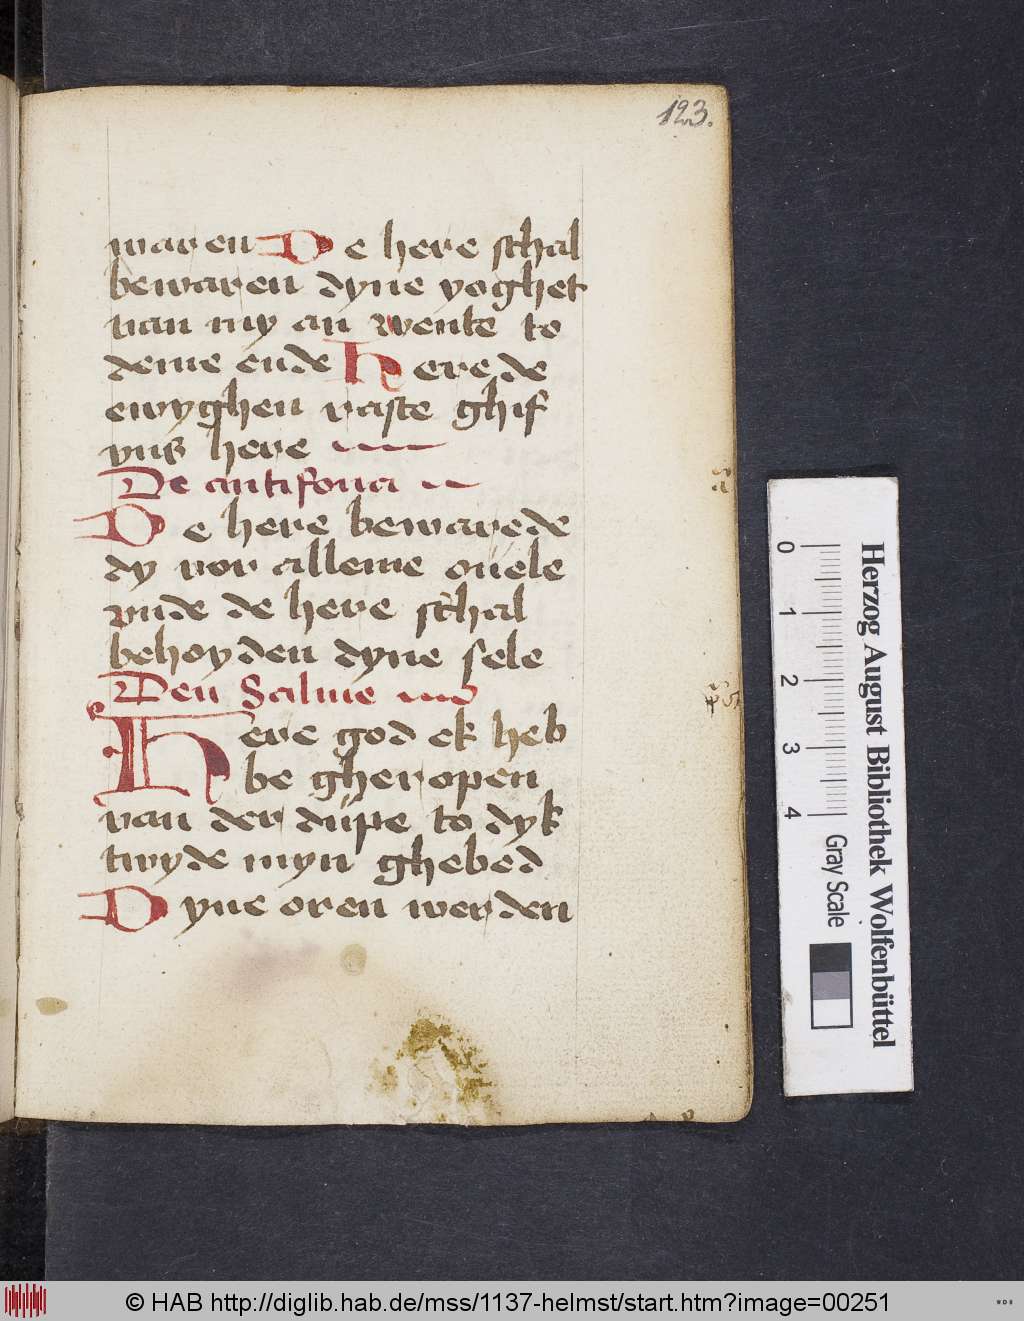 123.
waren De here schal
bewaren dyne yoghet
nan my an wente to
deme ende Here de
ewyghen raste ghif
yns here
De antifona
De here beware de
dy vor alleme ouele
vnde de here schal
behoyden dyne sele
Den Salme
Here god ek heb
be gheropen
van der düpe to dyk
twyde myn ghebed
Dyne oren werden
Herzog August Bibliothek Wolfenbüttel
0 1 2 3 4 Gray Scale
© HAB http://diglib.hab.de/mss/1137-helmst/start.htm?image=00251